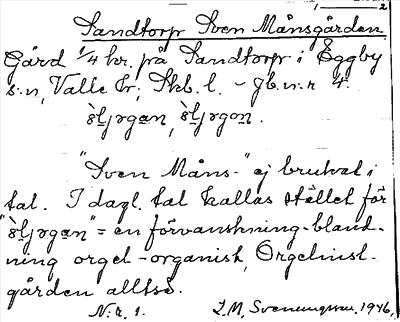 1 2
Sandtorp Sven Månsgården
Gård 1/4 hr. på Sandtorp i Eggby
s:n, Valle hr, Skb. l. - Jb. n:r 4.
"Sven Måns-" ej brukat i
tal. I dagl. tal kallas stället för
= en förvanskning-bland-
ning orgel-organist, Orgelnist-
gården alltså.
N:r. 1. L.M. Svenungsson. 1946.